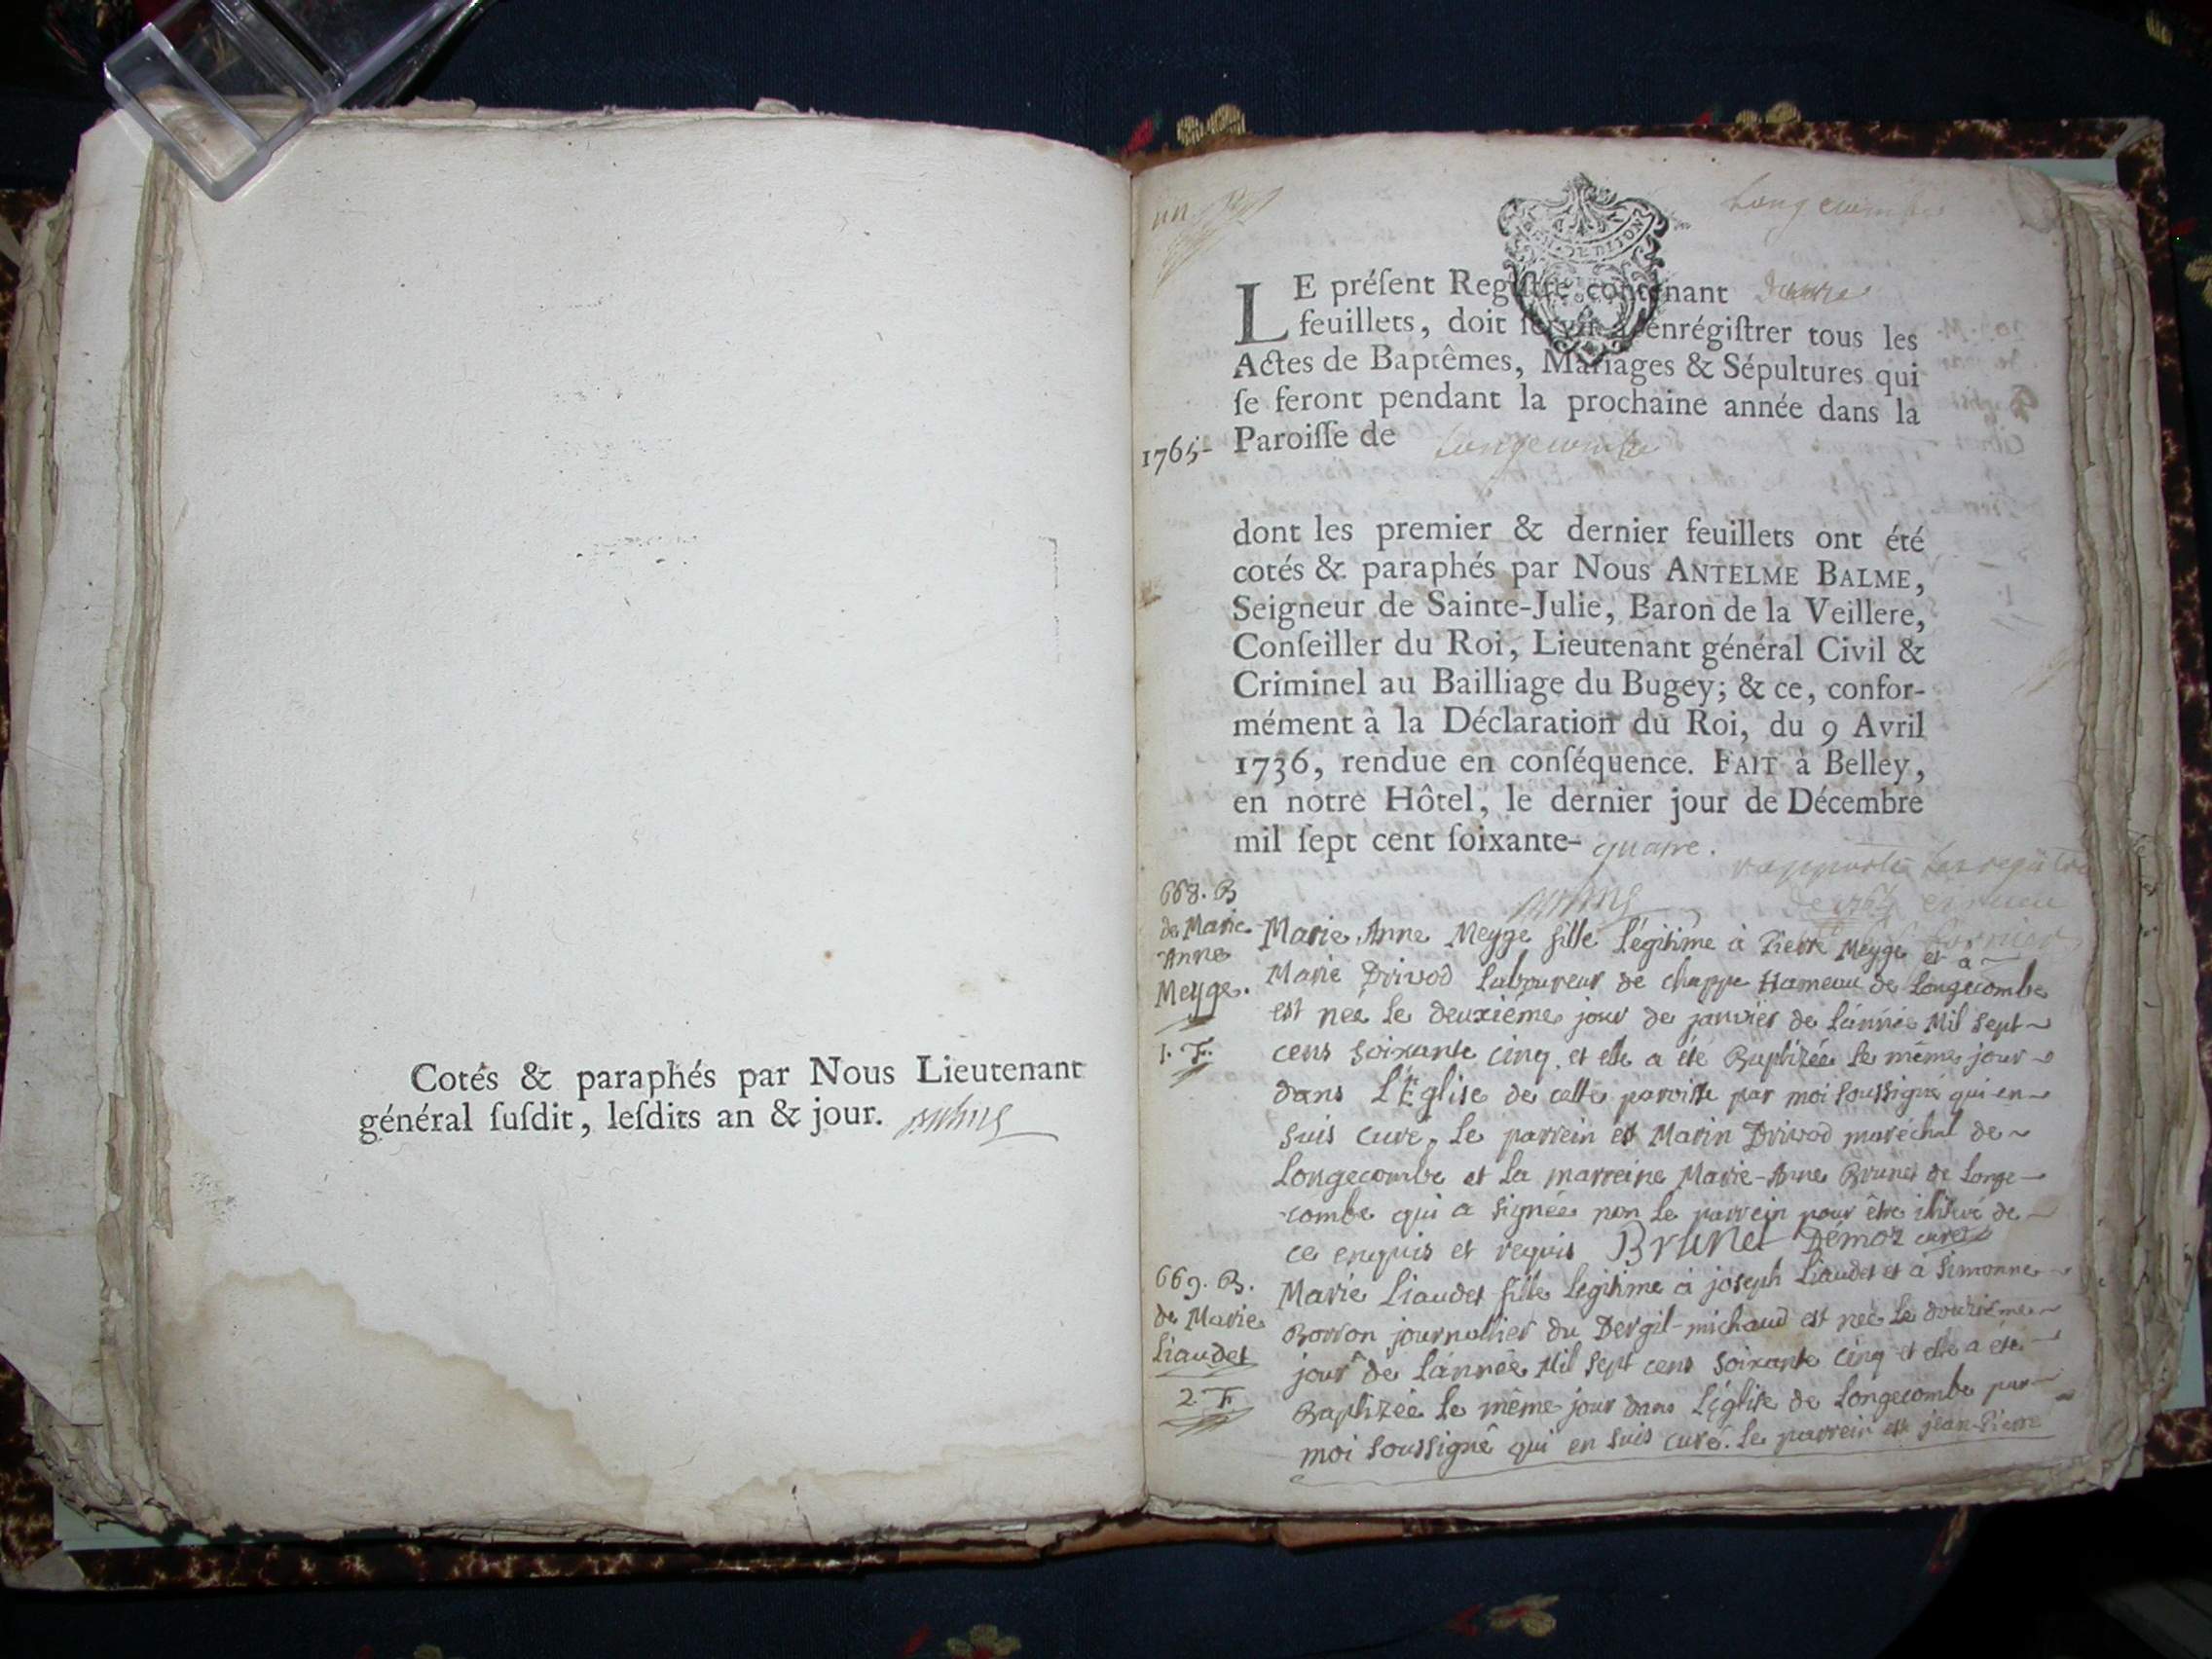 Cotés & paraphés par Nous Lieutenant
général ſuſdit, leſdits an & jour.
un
Longecombe
GEN. DE DIJON
LE préſent Regiſtre contenant douze
feuillets, doit ſervir à enrégiſtrer tous les
Actes de Baptêmes, Mariages & Sépultures qui
ſe feront pendant la prochaine année dans la
1765- Paroiſſe de Longecombe
dont les premier & dernier feuillets ont été
cotés & paraphés par Nous ANTELME BALME,
Seigneur de Sainte-Julie, Baron de la Veillere,
Conſeiller du Roi, Lieutenant général Civil &
Criminel au Bailliage du Bugey; & ce, confor-
mément à la Déclaration du Roi, du 9 Avril
1736, rendue en conſéquence. FAIT à Belley,
en notre Hôtel, le dernier jour de Décembre
mil ſept cent ſoixante- quatre.
rapporté les registre
de 1764
668. B
de Marie
Anne
Meyge.
1. F.
Marie Anne Meyge fille légitime à Pierre Meyge et à
Marie Drivod Laboureur de chappe Hameau de Longecombe
est née le deuxiéme jour de janvier de l'année Mil sept
cens soixante cinq et elle a été Baptizée le même jour
dans L'Eglise de cette paroisse par moi soussigné qui en
suis curé, le parrein est Marin Drivod maréchal de
Longecombe et la marreine Marie-Anne Brunet de Longe-
combe qui a signée non le parrein pour être illitéré de
ce enquis et requis Brunet Démoz curé
669. B.
de Marie
Liaudet
2. F.
Marie Liaudet fille légitime à joseph Liaudet et à Simonne
Borron journallier du Dergil-michaud est née le douziéme
jour de l'année Mil sept cens soixante cinq et elle a été
Baptizée le même jour dans L'église de Longecombe par
moi soussigné qui en suis curé. le parrein est jean-Pierre